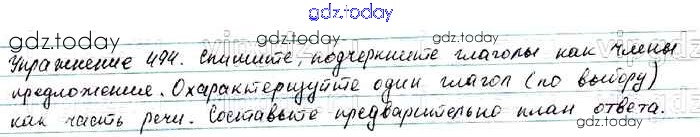 gdz.today
gdz.today gdz.today
Упражнение 494. Спишите, подчеркните глаголы как члены
предложение. Охарактеризуйте один глагол (по выбору)
как часть речи. Составьте предварительно план ответа.
gdz.today gdz.today